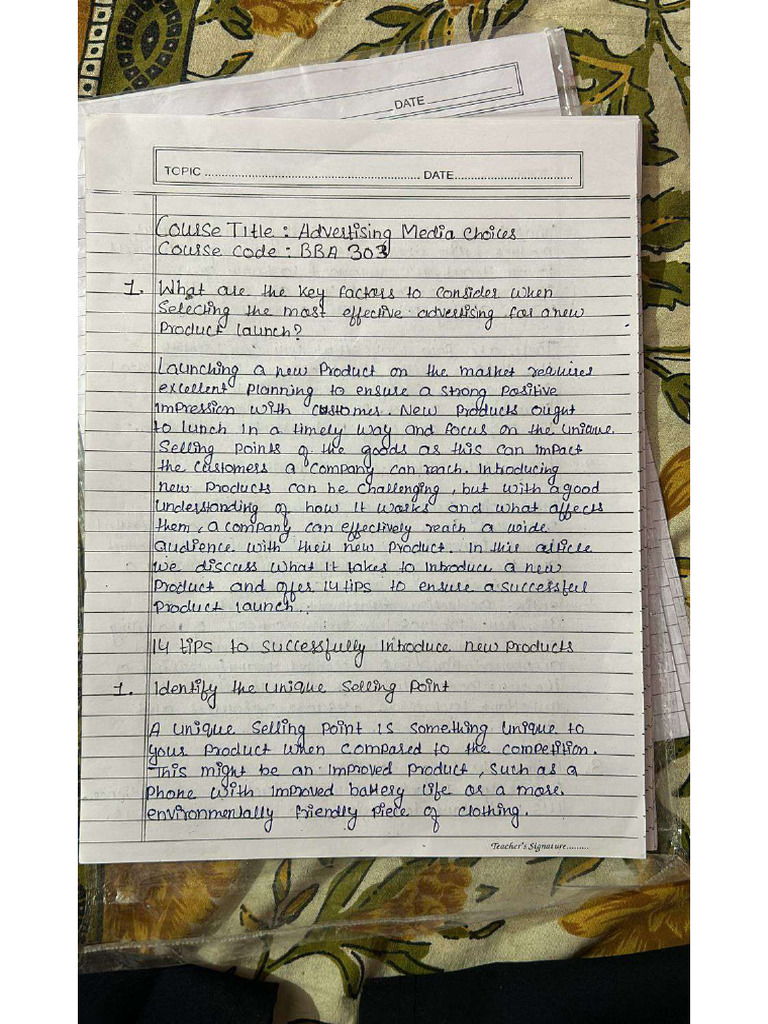 DATE
TOPIC ........ DATE........
Course Title : Advertising Media Choices
Course Code : BBA 303
1. What are the key factors to consider when
Selecting the most effective advertising for a new
Product launch?
Launching a new Product on the market requires
excellent planning to ensure a strong positive
impression with customer. New Products ought
to lunch in a timely way and focus on the unique
Selling points of the goods as this can impact
the customers a company can reach. Introducing
new products can be challenging, but with a good
understanding of how it works and what affects
them, a company can effectively reach a wide
audience with their new product. In this article
we discuss what it takes to introduce a new
Product and offer 14 tips to ensure a successful
Product launch.
14 tips to successfully introduce new products
1. Identify the unique selling point
A unique selling point is something unique to
your product when compared to the competition.
This might be an improved product, such as a
phone with improved battery life or a more
environmentally friendly piece of clothing.
Teacher's Signature.........